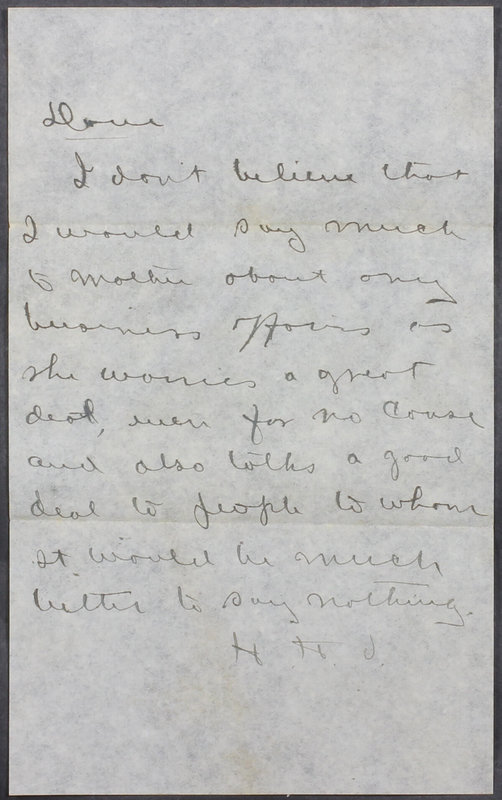 Dove
I don't believe that
I would say much
to Mother about any
business affairs as
she worries a great
deal, even for no cause
and also talks a good
deal to people to whom
it would be much
better to say nothing.
H. H. J.